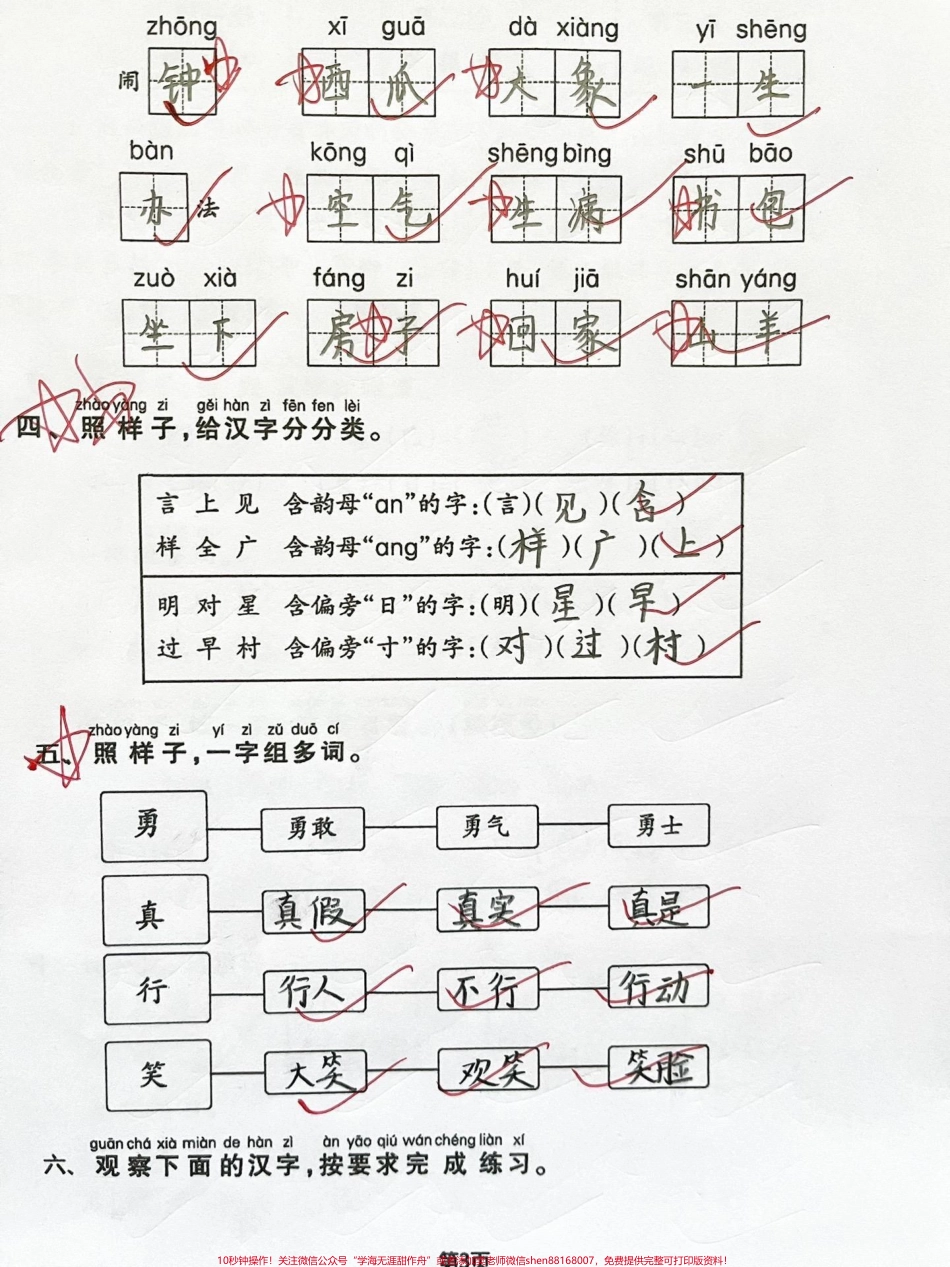 zhōng xī guā dà xiàng yī shēng
闹 钟 西 瓜 大 象 一 生
bàn kōng qì shēng bìng shū bāo
办 法 空 气 生 病 书 包
zuò xià fáng zi huí jiā shān yáng
坐 下 房 子 回 家 山 羊
zhào yàng zi gěi hàn zì fēn fen lèi
四、照样子,给汉字分分类。
言 上 见 含韵母“an”的字:(言)(见)(含)
样 全 广 含韵母“ang”的字:(样)(广)(上)
明 对 星 含偏旁“日”的字:(明)(星)(早)
过 早 村 含偏旁“寸”的字:(对)(过)(村)
zhào yàng zi yí zì zǔ duō cí
五、照样子,一字组多词。
勇 勇敢 勇气 勇士
真 真假 真实 真是
行 行人 不行 行动
笑 大笑 欢笑 笑脸
guān chá xià miàn de hàn zì àn yāo qiú wán chéng liàn xí
六、观察下面的汉字,按要求完成练习。
第3页
10秒钟操作!关注微信公众号“学海无涯甜作舟”老师微信shen88168007,免费提供完整可打印版资料!